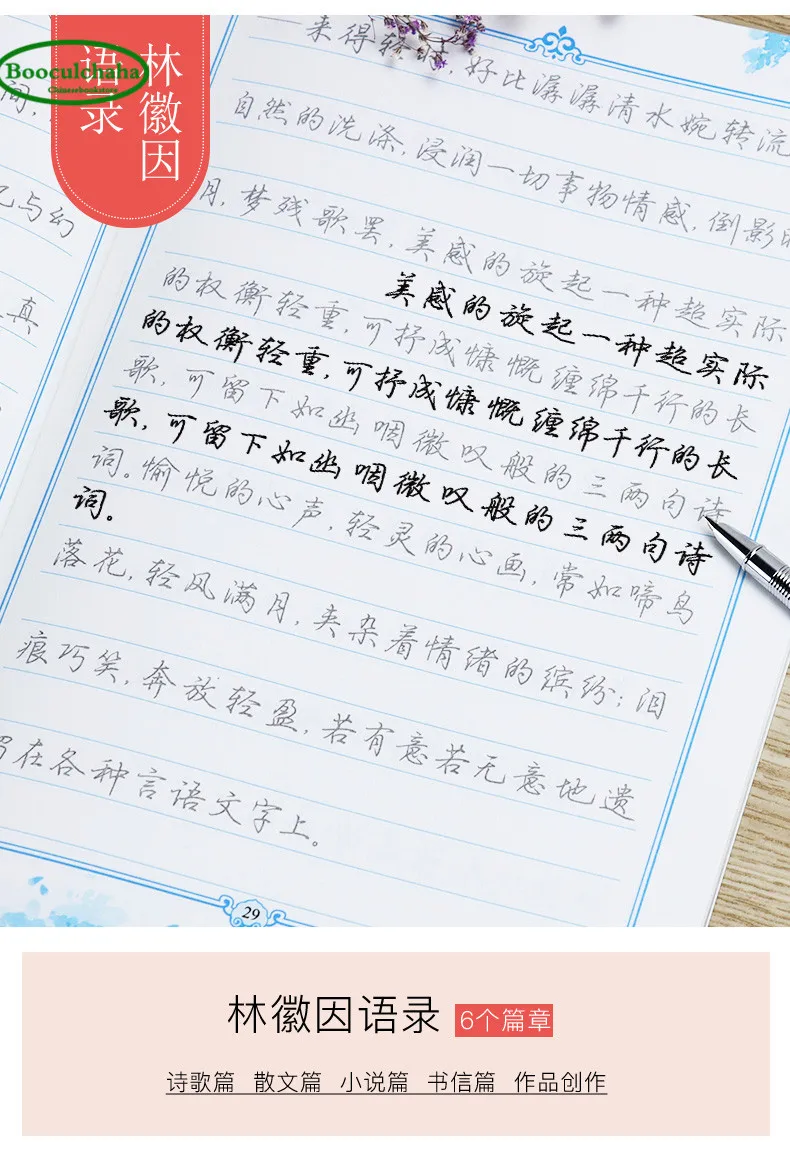 Booculchaha
Chinesebookstore
林徽因
语录
来得轻松,好比潺潺清水婉转流
自然的洗涤,浸润一切事物情感,倒影
月,梦残歌罢,美感的旋起一种超实际
的权衡轻重,可抒成慷慨缠绵千行的长
歌,可留下如幽咽微叹般的三两句诗
词。愉悦的心声,轻灵的心画,常如啼鸟
落花,轻风满月,夹杂着情绪的缤纷;泪
痕巧笑,奔放轻盈,若有意若无意地遗
留在各种言语文字上。
美感的旋起一种超实际
的权衡轻重,可抒成慷慨缠绵千行的长
歌,可留下如幽咽微叹般的三两句诗
词。
与幻
真
29
林徽因语录 6个篇章
诗歌篇 散文篇 小说篇 书信篇 作品创作